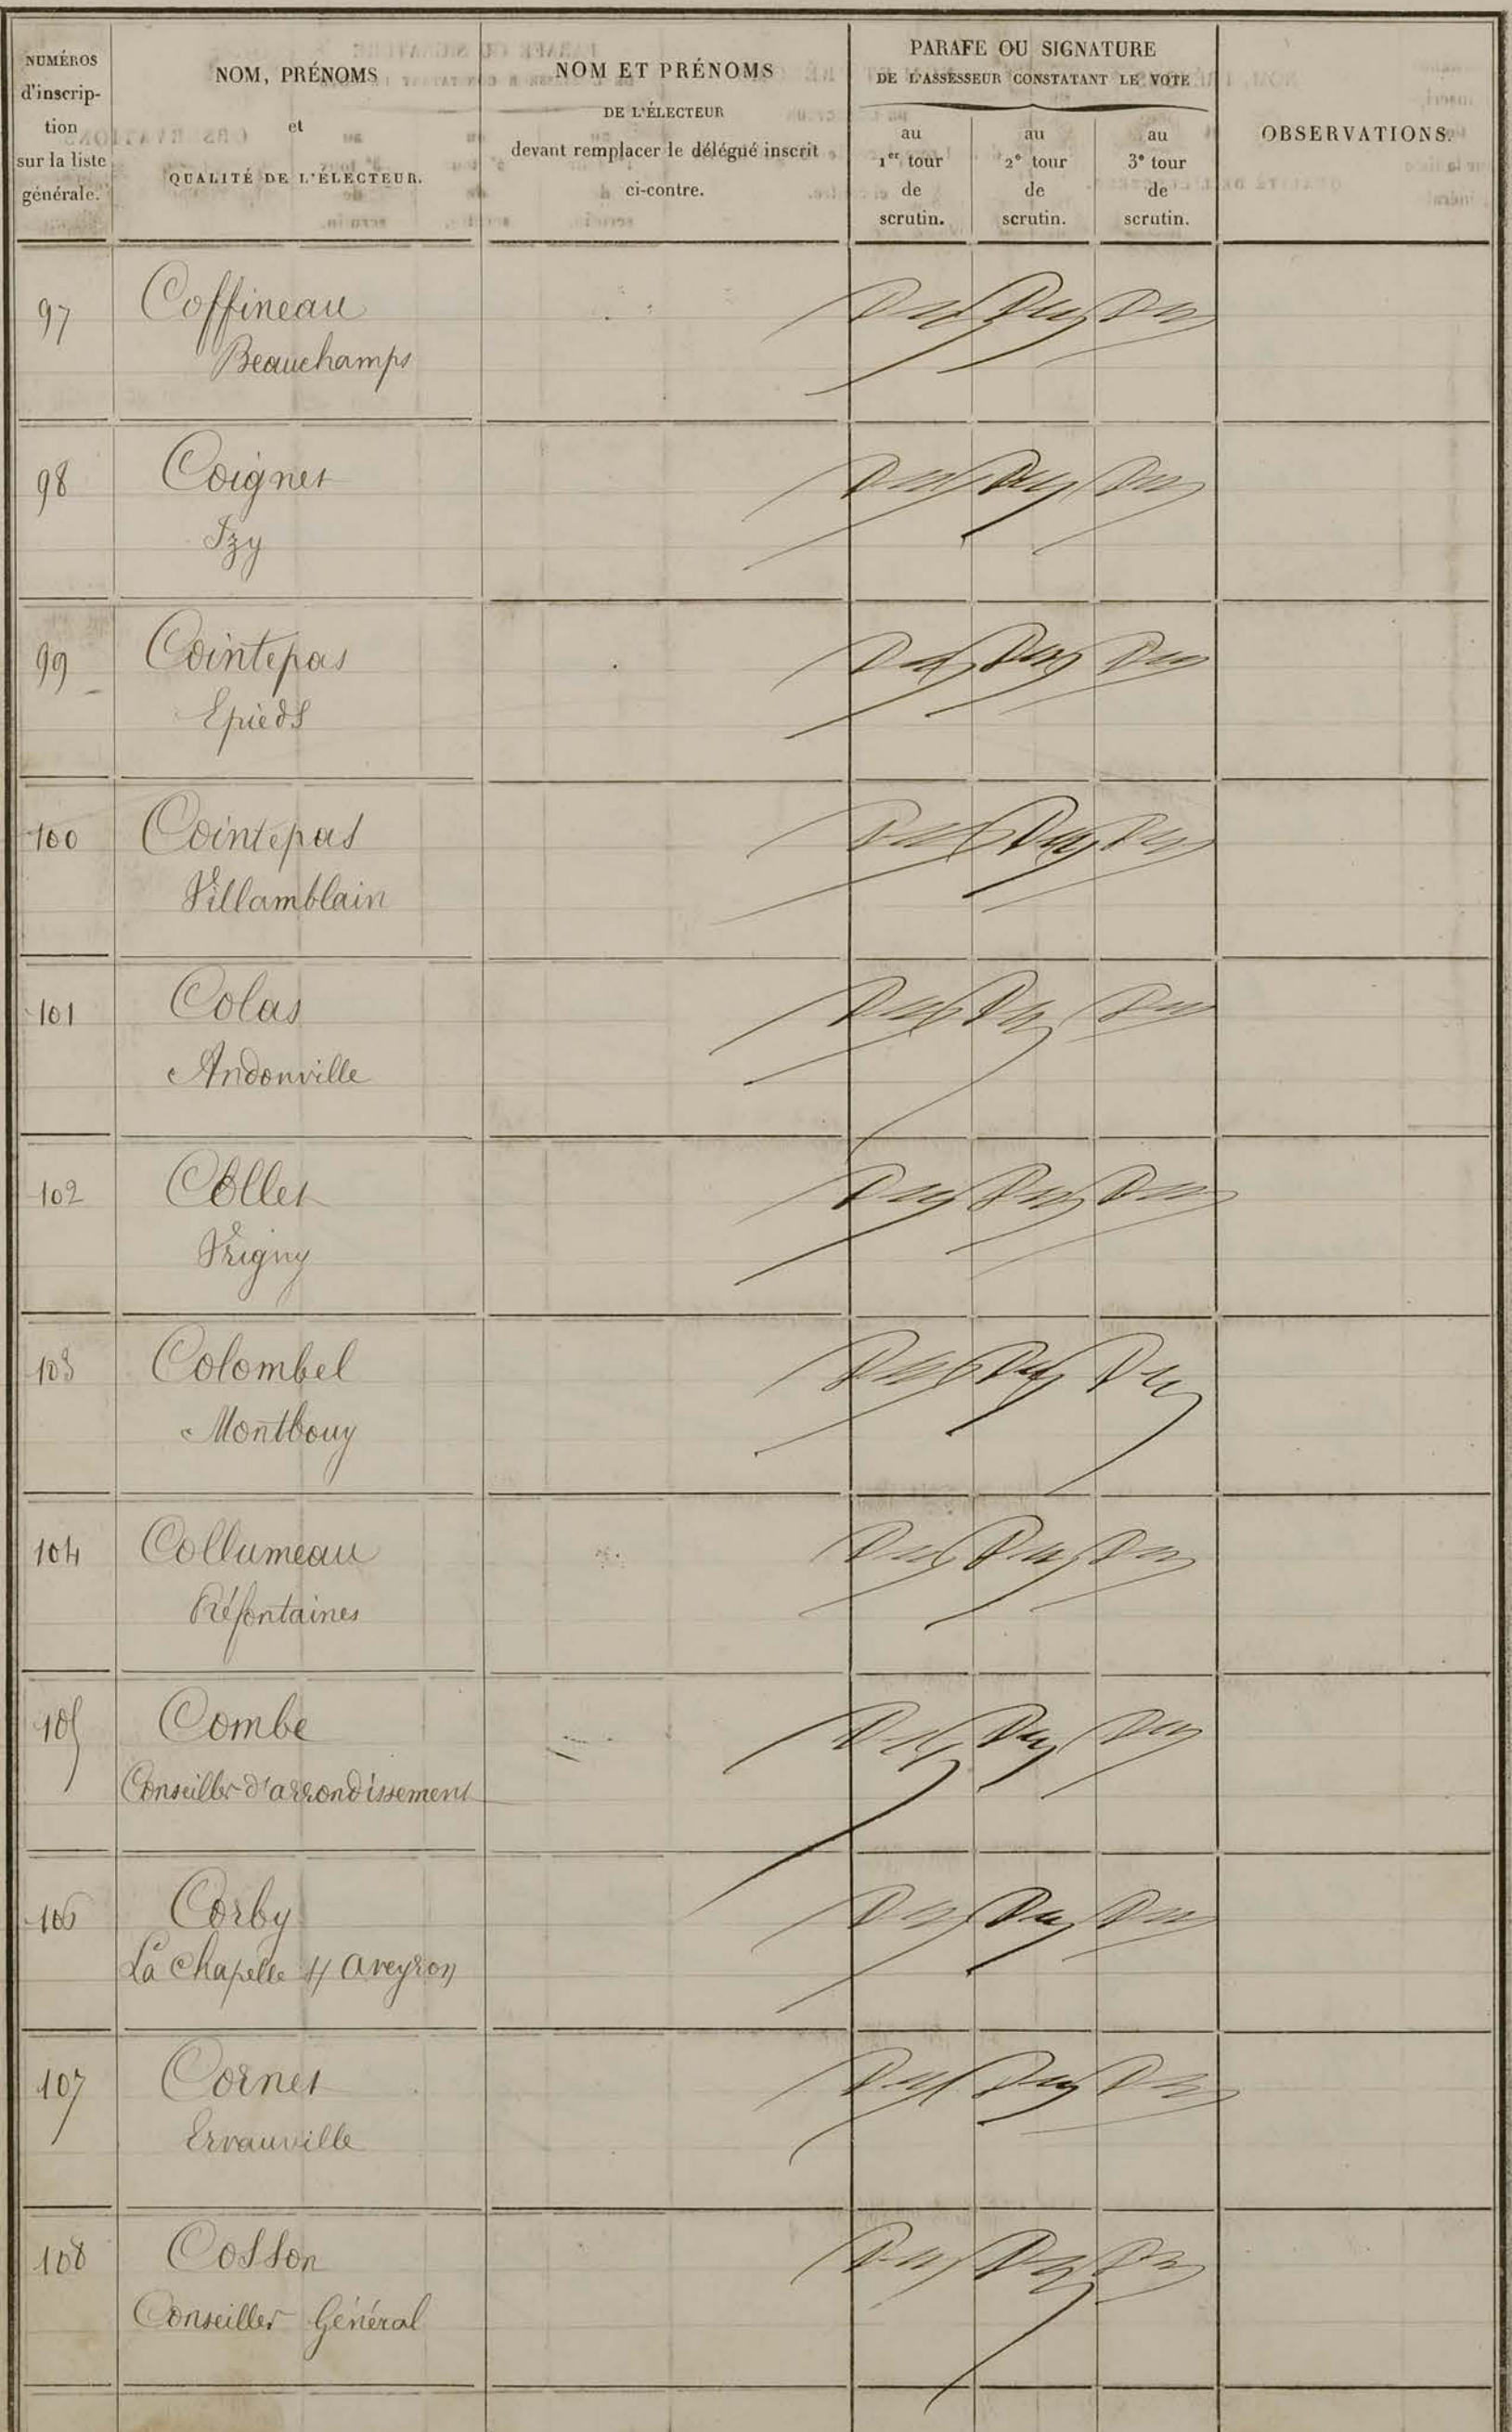 NUMÉROS
d'inscrip-
tion
sur la liste
générale.
NOM, PRÉNOMS
et
QUALITÉ DE L'ÉLECTEUR.
NOM ET PRÉNOMS
DE L'ÉLECTEUR
devant remplacer le délégué inscrit
ci-contre.
PARAFE OU SIGNATURE
DE L'ASSESSEUR CONSTATANT LE VOTE
au
1er tour
de
scrutin.
au
2e tour
de
scrutin.
au
3e tour
de
scrutin.
OBSERVATIONS.
97 Coffineau
Beauchamps
98 Coignet
Izy
99 Cointepas
Epieds
100 Cointepas
Villamblain
101 Colas
Andonville
102 Collet
Vrigny
103 Colombel
Montbouy
104 Collumeau
Préfontaines
105 Combe
Conseiller d'arrondissement
106 Corby
La Chapelle s/ aveyron
107 Cornet
Ervauville
108 Cosson
Conseiller Général